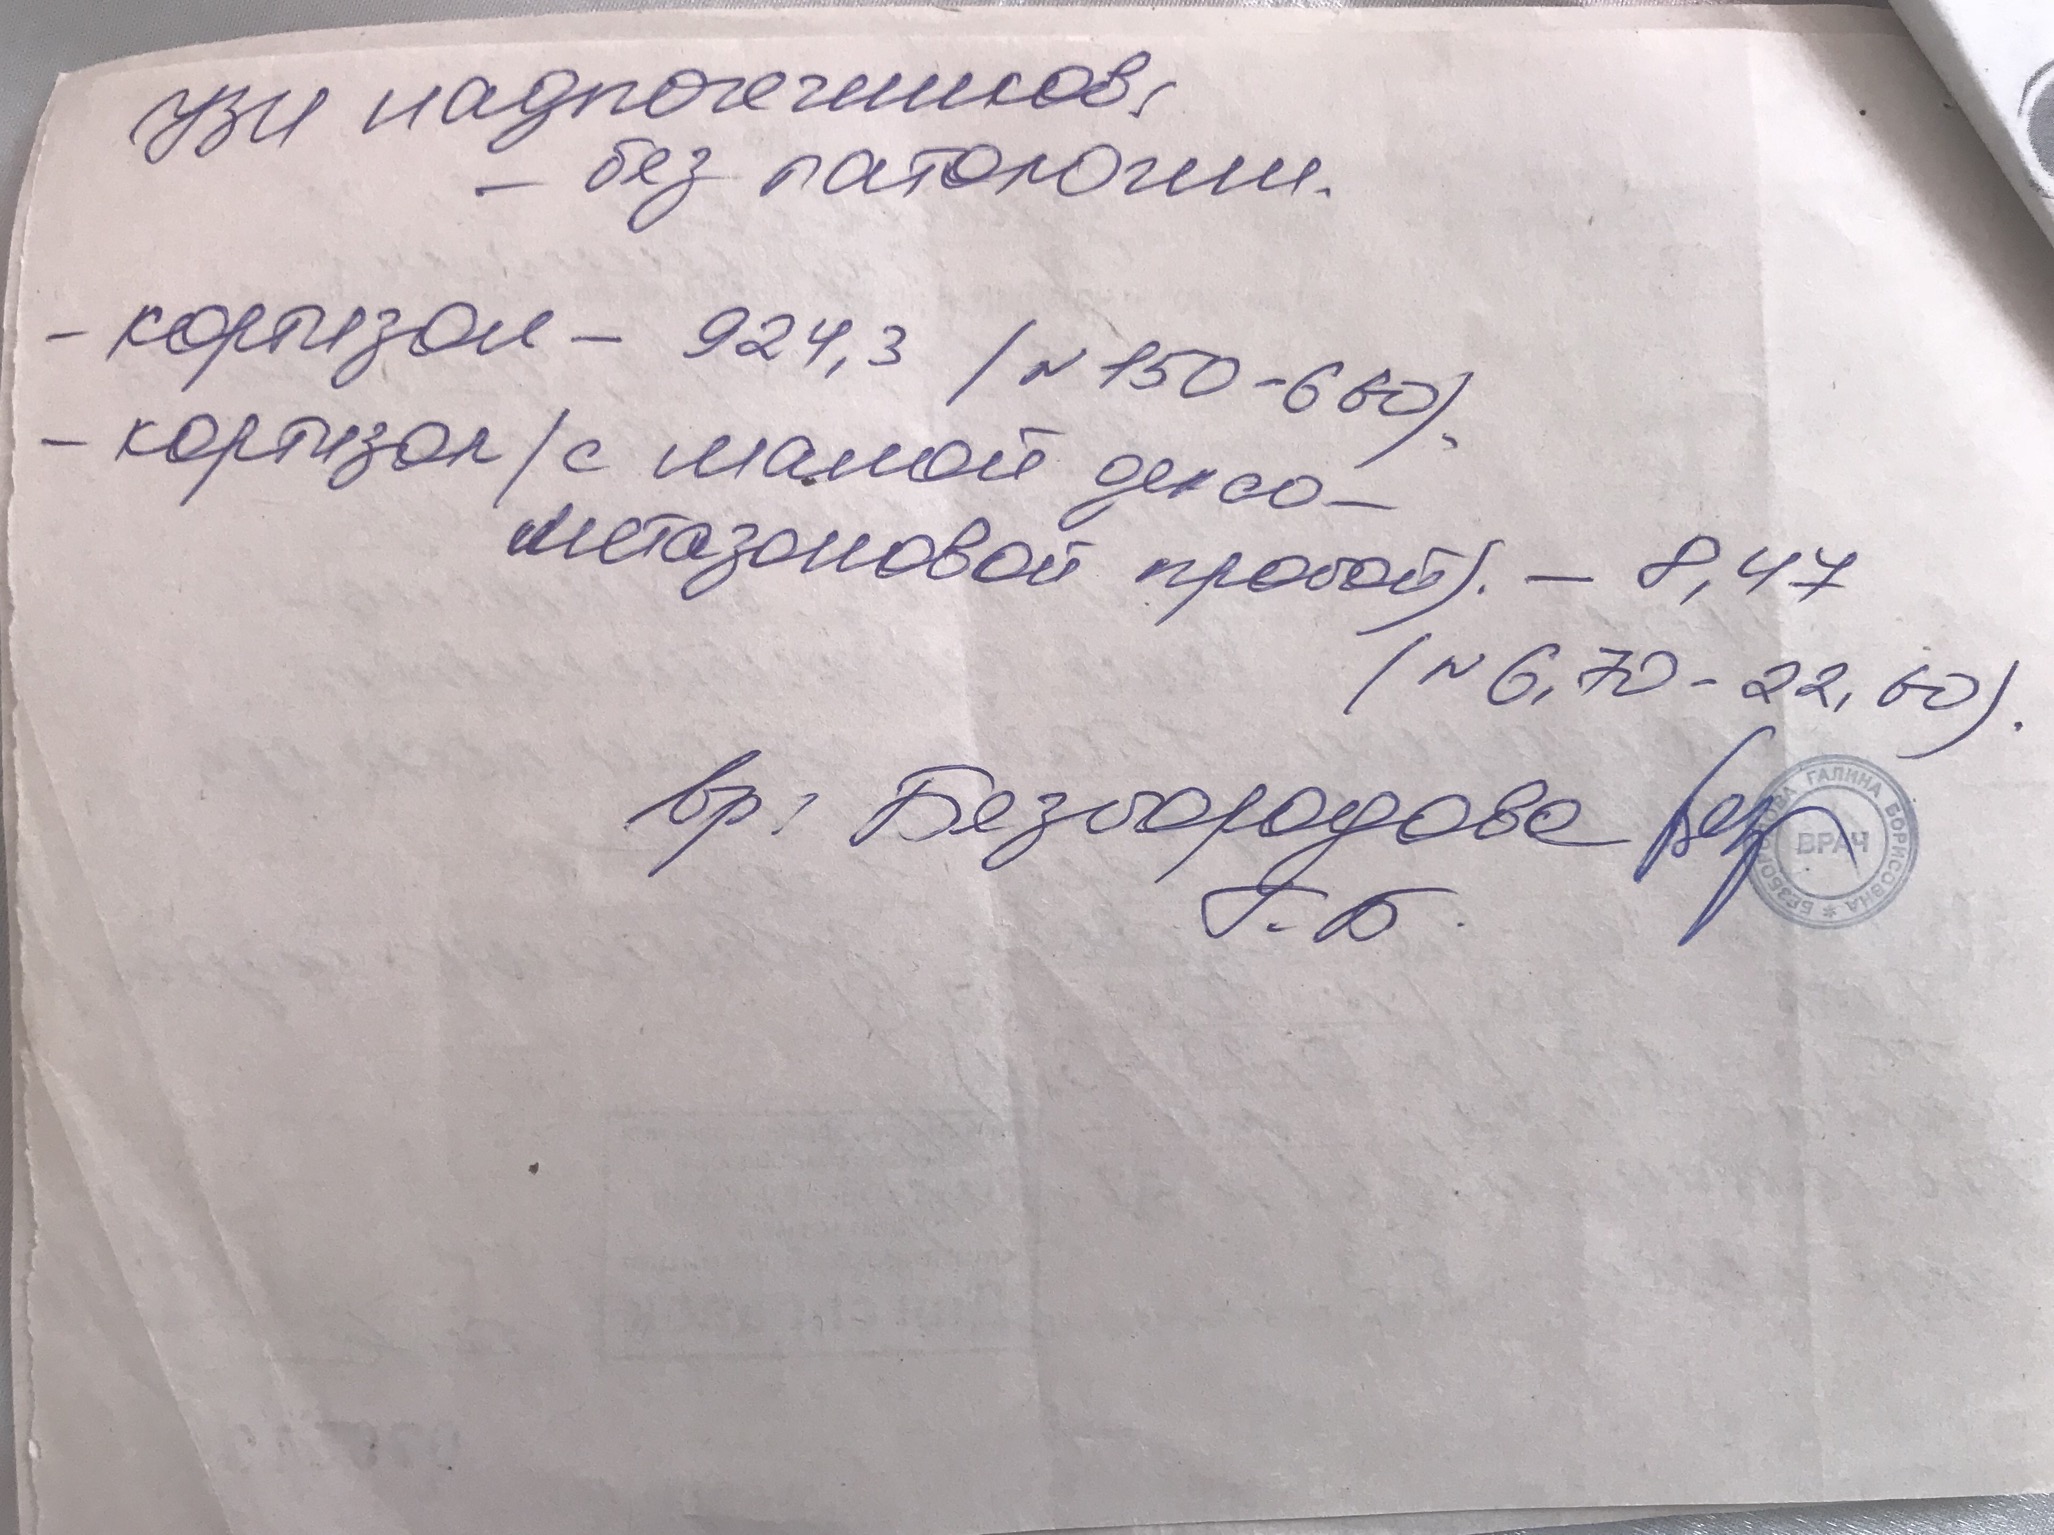 УЗИ надпочечников:
- без патологии.
- кортизол - 924,3 (N 150-660).
- кортизол (с малой дексо-
метазоновой пробой). - 8,47
(N 6,70-22,60).
вр: Безбородова
Г.Б.
БЕЗБОРОДОВА ГАЛИНА БОРИСОВНА *
ВРАЧ